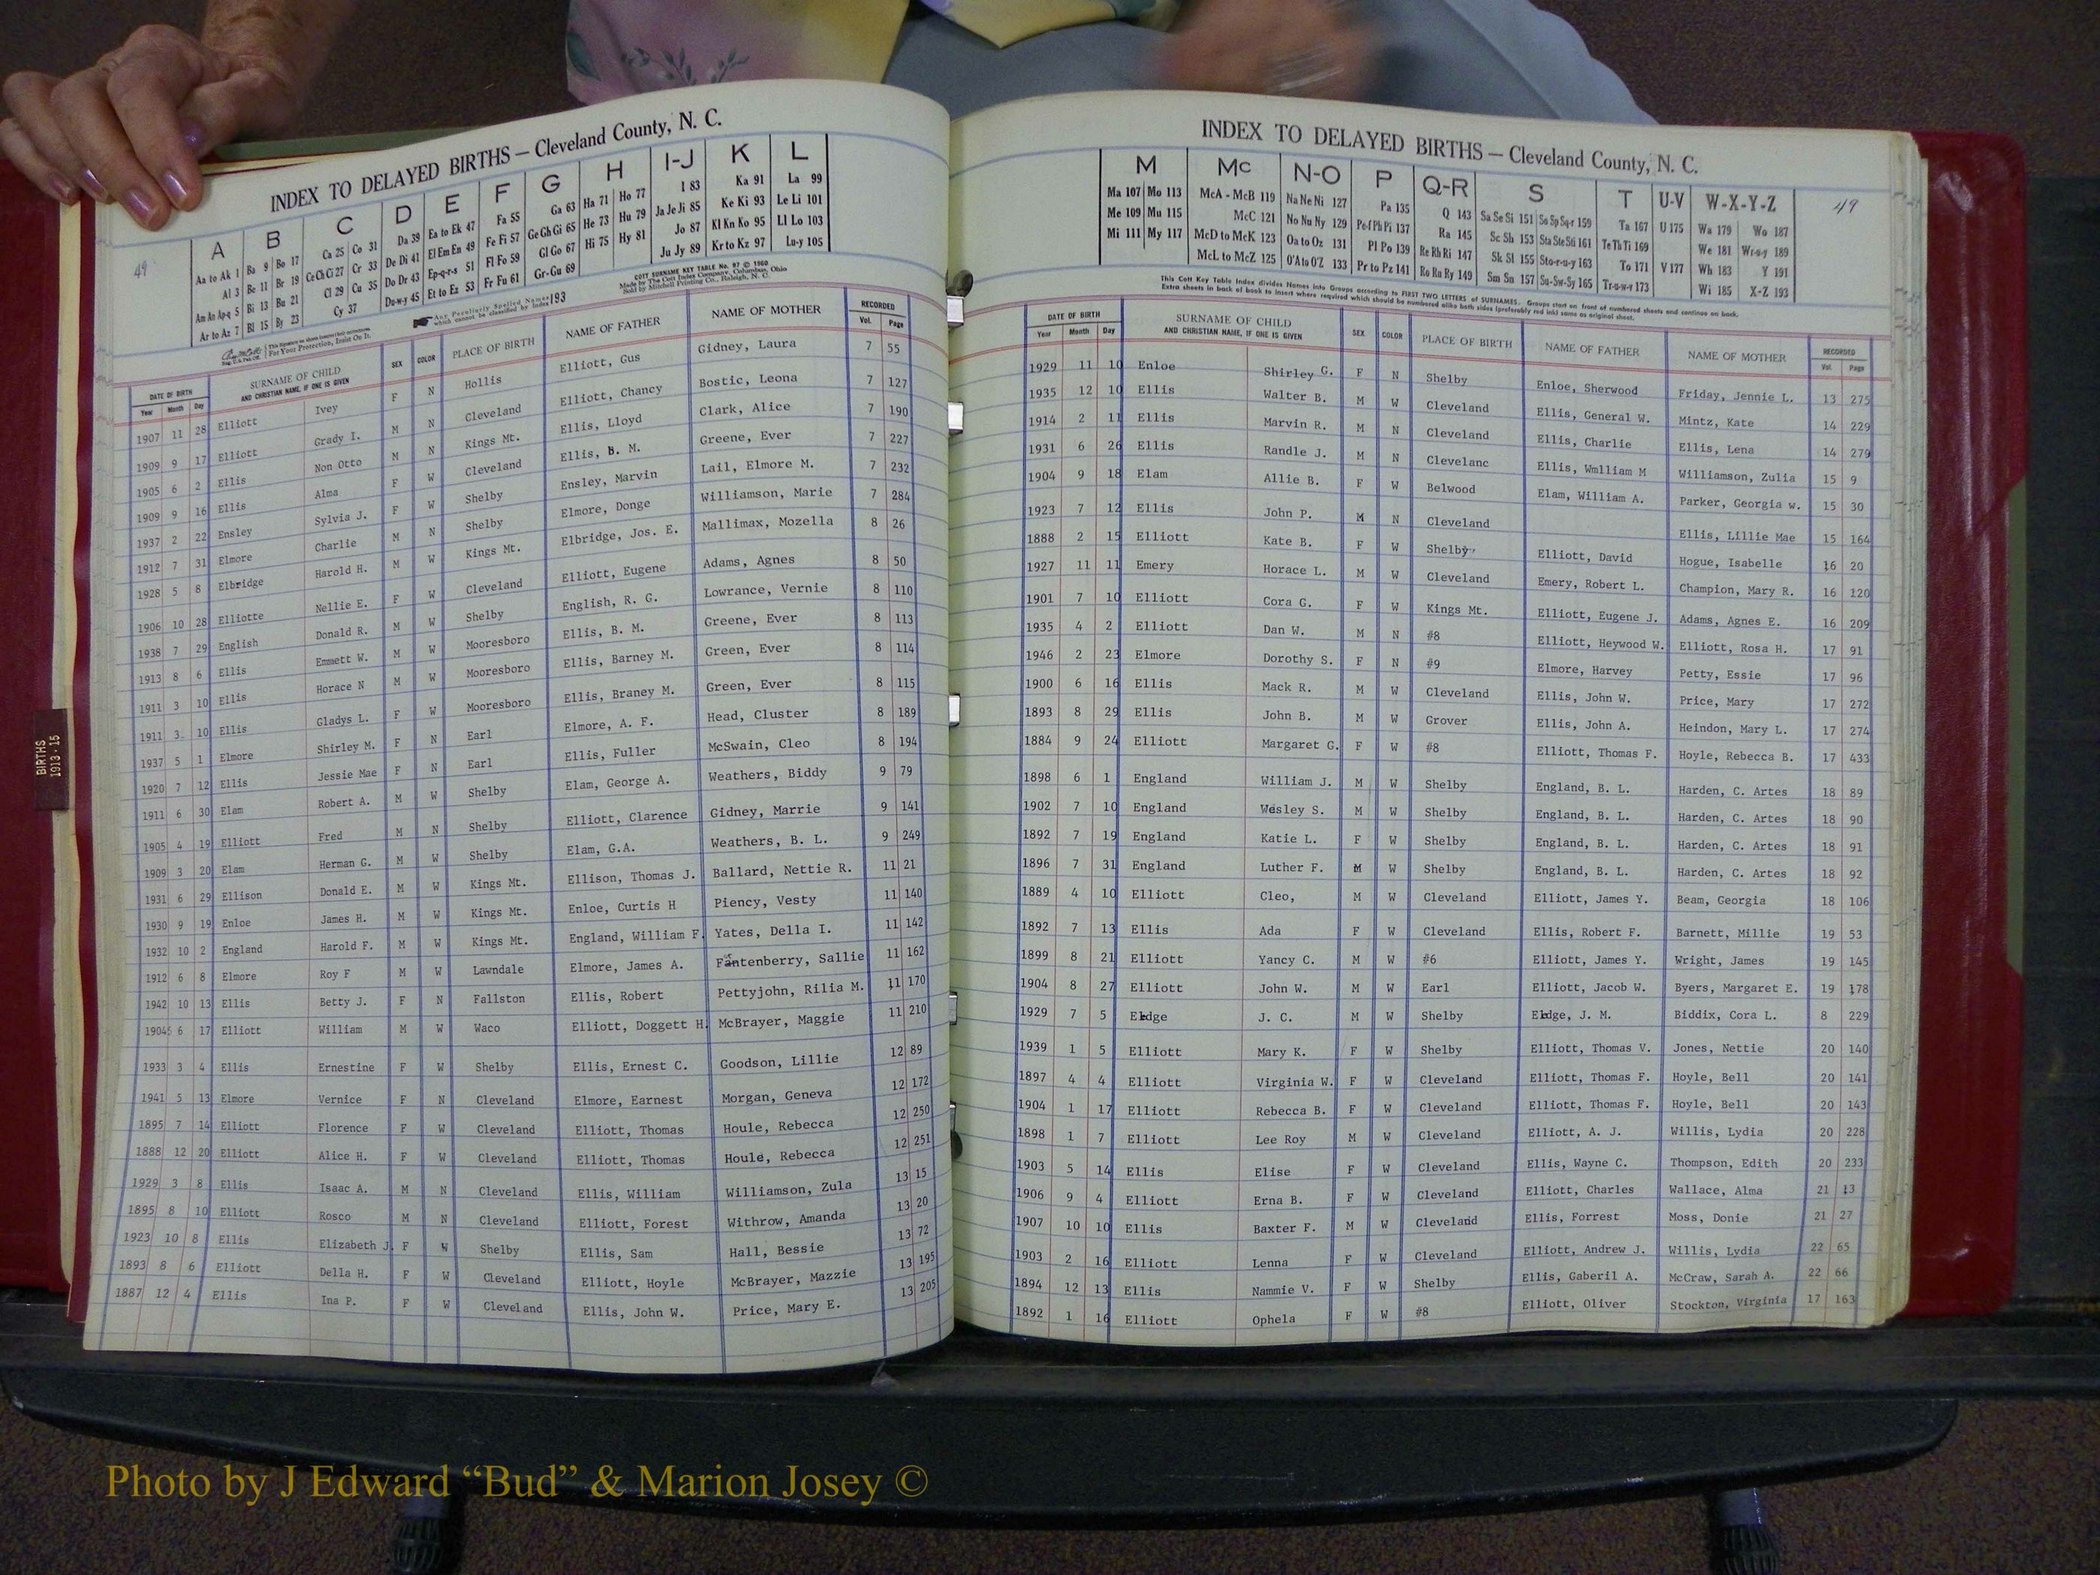 INDEX TO DELAYED BIRTHS — Cleveland County, N. C.
49
A B C D E F G H I-J K L
Aa to Ak 1 Ba 9 Bo 17 Ca 25 Co 31 Da 39 Ea to Ek 47 Fa 55 Ga 63 Ha 71 Ho 77 I 83 Ka 91 La 99
Al 3 Be 11 Br 19 Ce Ch Ci 27 Cr 33 De Di 41 El Em En 49 Fe Fi 57 Ge Gh Gi 65 He 73 Hu 79 Ja Je Ji 85 Ke Ki 93 Le Li 101
Am An Ap-q 5 Bi 13 Bu 21 Cl 29 Cu 35 Do Dr 43 Ep-q-r-s 51 Fl Fo 59 Gl Go 67 Hi 75 Hy 81 Jo 87 Kl Kn Ko 95 Ll Lo 103
Ar to Az 7 Bl 15 By 23 Cy 37 Du-w-y 45 Et to Ez 53 Fr Fu 61 Gr-Gu 69 Ju Jy 89 Kr to Kz 97 Lu-y 105
For Your Protection, Insist On It.
Any Peculiarly Spelled Names which cannot be classified by Index 193
COTT SURNAME KEY TABLE No. 97 © 1960
Made by The Cott Index Company, Columbus, Ohio
Sold by Mitchell Printing Co., Raleigh, N. C.
DATE OF BIRTH Year Month Day SURNAME OF CHILD AND CHRISTIAN NAME, IF ONE IS GIVEN SEX COLOR PLACE OF BIRTH NAME OF FATHER NAME OF MOTHER RECORDED Vol. Page
1907 11 28 Elliott Ivey F N Hollis Elliott, Gus Gidney, Laura 7 55
1909 9 17 Elliott Grady I. M N Cleveland Elliott, Chancy Bostic, Leona 7 127
1905 6 2 Ellis Non Otto M N Kings Mt. Ellis, Lloyd Clark, Alice 7 190
1909 9 16 Ellis Alma F W Cleveland Ellis, B. M. Greene, Ever 7 227
1937 2 22 Ensley Sylvia J. F W Shelby Ensley, Marvin Lail, Elmore M. 7 232
1912 7 31 Elmore Charlie M N Shelby Elmore, Donge Williamson, Marie 7 284
1928 5 8 Elbridge Harold H. M W Kings Mt. Elbridge, Jos. E. Mallimax, Mozella 8 26
1906 10 28 Elliotte Nellie E. F W Cleveland Elliott, Eugene Adams, Agnes 8 50
1938 7 29 English Donald R. M W Shelby English, R. G. Lowrance, Vernie 8 110
1913 8 6 Ellis Emmett W. M W Mooresboro Ellis, B. M. Greene, Ever 8 113
1911 3 10 Ellis Horace N M W Mooresboro Ellis, Barney M. Green, Ever 8 114
1911 3 10 Ellis Gladys L. F W Mooresboro Ellis, Braney M. Green, Ever 8 115
1937 5 1 Elmore Shirley M. F N Earl Elmore, A. F. Head, Cluster 8 189
1920 7 12 Ellis Jessie Mae F N Earl Ellis, Fuller McSwain, Cleo 8 194
1911 6 30 Elam Robert A. M W Shelby Elam, George A. Weathers, Biddy 9 79
1905 4 19 Elliott Fred M N Shelby Elliott, Clarence Gidney, Marrie 9 141
1909 3 20 Elam Herman G. M W Shelby Elam, G.A. Weathers, B. L. 9 249
1931 6 29 Ellison Donald E. M W Kings Mt. Ellison, Thomas J. Ballard, Nettie R. 11 21
1930 9 19 Enloe James H. M W Kings Mt. Enloe, Curtis H Piency, Vesty 11 140
1932 10 2 England Harold F. M W Kings Mt. England, William F. Yates, Della I. 11 142
1912 6 8 Elmore Roy F M W Lawndale Elmore, James A. Fantenberry, Sallie 11 162
1942 10 13 Ellis Betty J. F N Fallston Ellis, Robert Pettyjohn, Rilia M. 11 170
1904 6 17 Elliott William M W Waco Elliott, Doggett H. McBrayer, Maggie 11 210
1933 3 4 Ellis Ernestine F W Shelby Ellis, Ernest C. Goodson, Lillie 12 89
1941 5 13 Elmore Vernice F N Cleveland Elmore, Earnest Morgan, Geneva 12 172
1895 7 14 Elliott Florence F W Cleveland Elliott, Thomas Houle, Rebecca 12 250
1888 12 20 Elliott Alice H. F W Cleveland Elliott, Thomas Houle, Rebecca 12 251
1929 3 8 Ellis Isaac A. M N Cleveland Ellis, William Williamson, Zula 13 15
1895 8 10 Elliott Rosco M N Cleveland Elliott, Forest Withrow, Amanda 13 20
1923 10 8 Ellis Elizabeth J. F W Shelby Ellis, Sam Hall, Bessie 13 72
1893 8 6 Elliott Della H. F W Cleveland Elliott, Hoyle McBrayer, Mazzie 13 195
1887 12 4 Ellis Ina P. F W Cleveland Ellis, John W. Price, Mary E. 13 205
INDEX TO DELAYED BIRTHS — Cleveland County, N. C.
49
M Mc N-O P Q-R S T U-V W-X-Y-Z
Ma 107 Mo 113 McA - McB 119 Na Ne Ni 127 Pa 135 Q 143 Sa Se Si 151 So Sp Sq-r 159 Ta 167 U 175 Wa 179 Wo 187
Me 109 Mu 115 McC 121 No Nu Ny 129 Pe-f Ph Pi 137 Ra 145 Sc Sh 153 Sta Ste Sti 161 Te Th Ti 169 We 181 Wr-u-y 189
Mi 111 My 117 McD to McK 123 Oa to Oz 131 Pl Po 139 Re Rh Ri 147 Sk Sl 155 Sto-r-u-y 163 To 171 V 177 Wh 183 Y 191
McL to McZ 125 O'A to O'Z 133 Pr to Pz 141 Ro Ru Ry 149 Sm Sn 157 Su-Sw-Sy 165 Tr-u-w-y 173 Wi 185 X-Z 193
This Cott Key Table Index divides Names into Groups according to FIRST TWO LETTERS of SURNAMES. Groups start on front of numbered sheets and continue on back.
Extra sheets in back of book to insert where required which should be numbered alike both sides (preferably red ink) same as original sheet.
DATE OF BIRTH Year Month Day SURNAME OF CHILD AND CHRISTIAN NAME, IF ONE IS GIVEN SEX COLOR PLACE OF BIRTH NAME OF FATHER NAME OF MOTHER RECORDED Vol. Page
1929 11 10 Enloe Shirley G. F N Shelby Enloe, Sherwood Friday, Jennie L. 13 275
1935 12 10 Ellis Walter B. M W Cleveland Ellis, General W. Mintz, Kate 14 229
1914 2 11 Ellis Marvin R. M N Cleveland Ellis, Charlie Ellis, Lena 14 279
1931 6 26 Ellis Randle J. M N Clevelanc Ellis, Wmlliam M Williamson, Zulia 15 9
1904 9 18 Elam Allie B. F W Belwood Elam, William A. Parker, Georgia w. 15 30
1923 7 12 Ellis John P. M N Cleveland Ellis, Lillie Mae 15 164
1888 2 15 Elliott Kate B. F W Shelby Elliott, David Hogue, Isabelle 16 20
1927 11 11 Emery Horace L. M W Cleveland Emery, Robert L. Champion, Mary R. 16 120
1901 7 10 Elliott Cora G. F W Kings Mt. Elliott, Eugene J. Adams, Agnes E. 16 209
1935 4 2 Elliott Dan W. M N #8 Elliott, Heywood W. Elliott, Rosa H. 17 91
1946 2 23 Elmore Dorothy S. F N #9 Elmore, Harvey Petty, Essie 17 96
1900 6 16 Ellis Mack R. M W Cleveland Ellis, John W. Price, Mary 17 272
1893 8 29 Ellis John B. M W Grover Ellis, John A. Heindon, Mary L. 17 274
1884 9 24 Elliott Margaret G. F W #8 Elliott, Thomas F. Hoyle, Rebecca B. 17 433
1898 6 1 England William J. M W Shelby England, B. L. Harden, C. Artes 18 89
1902 7 10 England Wesley S. M W Shelby England, B. L. Harden, C. Artes 18 90
1892 7 19 England Katie L. F W Shelby England, B. L. Harden, C. Artes 18 91
1896 7 31 England Luther F. M W Shelby England, B. L. Harden, C. Artes 18 92
1889 4 10 Elliott Cleo, M W Cleveland Elliott, James Y. Beam, Georgia 18 106
1892 7 13 Ellis Ada F W Cleveland Ellis, Robert F. Barnett, Millie 19 53
1899 8 21 Elliott Yancy C. M W #6 Elliott, James Y. Wright, James 19 145
1904 8 27 Elliott John W. M W Earl Elliott, Jacob W. Byers, Margaret E. 19 178
1929 7 5 J. C. M W Shelby J. M. Biddix, Cora L. 8 229
1939 1 5 Elliott Mary K. F W Shelby Elliott, Thomas V. Jones, Nettie 20 140
1897 4 4 Elliott Virginia W. F W Cleveland Elliott, Thomas F. Hoyle, Bell 20 141
1904 1 17 Elliott Rebecca B. F W Cleveland Elliott, Thomas F. Hoyle, Bell 20 143
1898 1 7 Elliott Lee Roy M W Cleveland Elliott, A. J. Willis, Lydia 20 228
1903 5 14 Ellis Elise F W Cleveland Ellis, Wayne C. Thompson, Edith 20 233
1906 9 4 Elliott Erna B. F W Cleveland Elliott, Charles Wallace, Alma 21 13
1907 10 10 Ellis Baxter F. M W Cleveland Ellis, Forrest Moss, Donie 21 27
1903 2 16 Elliott Lenna F W Cleveland Elliott, Andrew J. Willis, Lydia 22 65
1894 12 13 Ellis Nammie V. F W Shelby Ellis, Gaberil A. McCraw, Sarah A. 22 66
1892 1 16 Elliott Ophela F W #8 Elliott, Oliver Stockton, Virginia 17 163
BIRTHS
1913-15
Photo by J Edward “Bud” & Marion Josey ©